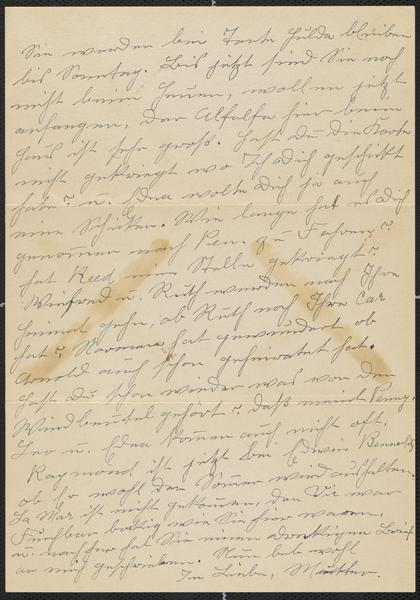 Sie werden bei Tante Hulda bleiben
bis Sonntag. Bis jetzt sind Sie noch
nicht beim Heuen, wollen jetzt
anfangen, der Alfalfa hier beim
Haus ist sehr groß. Hast Du die Karte
nicht gekriegt wo Ich Dich geschickt
habe? u. Edna wolte Dich ja auch
eine Schicken. Wie lange hat es Dich
genommen nach Pen. zu Fahren?
hat Reed eine Stelle gekriegt?
Winfred u. Ruth werden nach Ihre
Heimat gehn, ob Ruth noch Ihre Car
hat? Norman hat gewundert ob
Arnold auch schon geheiratet hat.
Hast Du schon wieder was von den
Windbeutel gehört? daß meint Penny.
Leo u. Edna kommen auch nicht oft.
Raymond ist jetzt bei Edwin
ob Er wohl den Sommer wird aushalten.
La Mar ist nicht gekommen, der Vir war
Furchbar bokig wie Sie hier waren,
u. nachher hat Sie einen dreckigen Brief
an mich geschrieben. Nun leb wohl
In Liebe, Mutter.